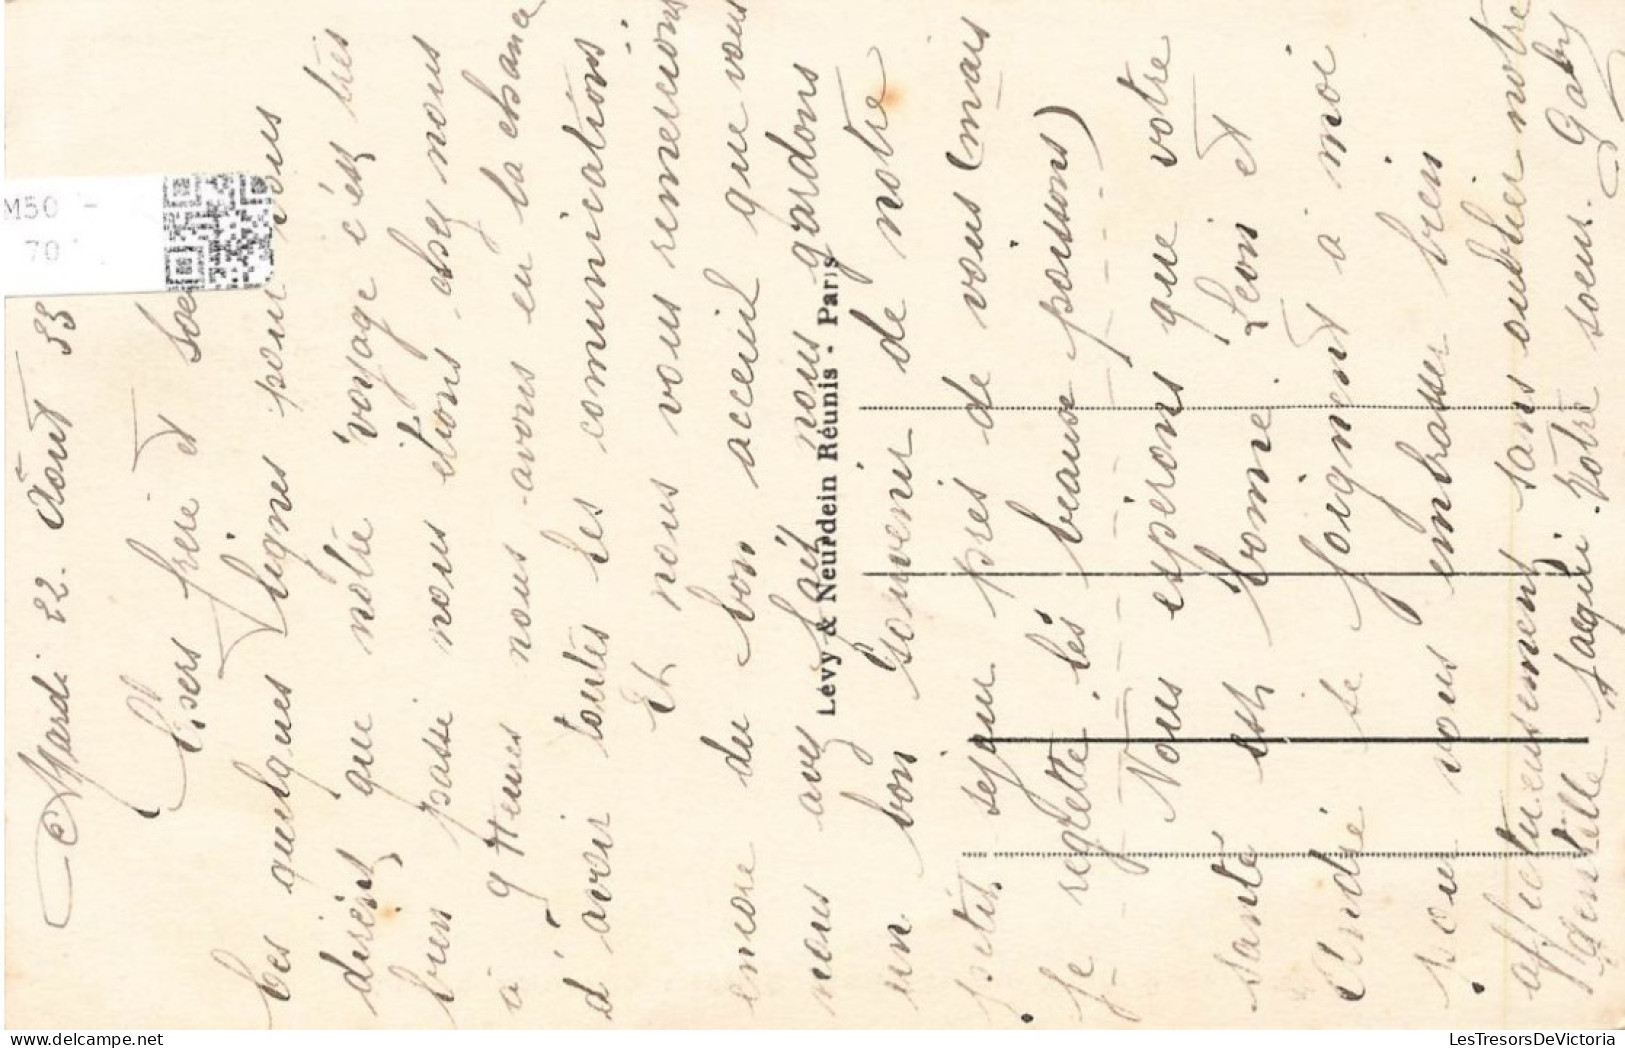 Mardi 22. Août 33
Chers frère et Soe
Ces quelques lignes pour vous
dirent que notre voyage c'ést très
bien passé nous étions chez nous
à 9 Heures nous avons eu la chance
d'avoir toutes les communications
Et nous vous remercions
encore du bon acceuil que vous
nous avez fait nous gardons
un bon souvenir de notre
petit sejour près de vous (mais
je regrette les beaux poissons)
Nous espérons que votre
santé est bonne. Léon et
André se joignent à moi
pour vous embrasser bien
affectueusement sans oublier notre
gentille Jacqui. Votre soeur. Gaby
Lévy & Neurdein Réunis - Paris
M50 -
70
LesTresorsDeVictoria
delcampe.net